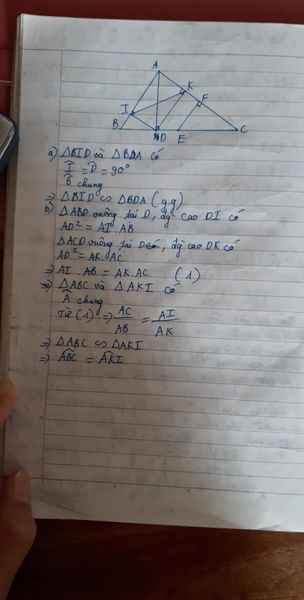 A
K
F
I
B
D
E
C
a) ΔBID và ΔBDA có
Î = D̂ = 90°
B̂ chung
=> ΔBID ∽ ΔBDA (g.g)
b) ΔABD vuông tại D, đg cao DI có
AD² = AI. AB
ΔACD vuông tại D có, đg cao DK có
AD² = AK. AC
=> AI. AB = AK. AC (1)
ΔABC và ΔAKI có
Â chung
Từ (1) => AC/AB = AI/AK
=> ΔABC ∽ ΔAKI
=> ABC = AKI